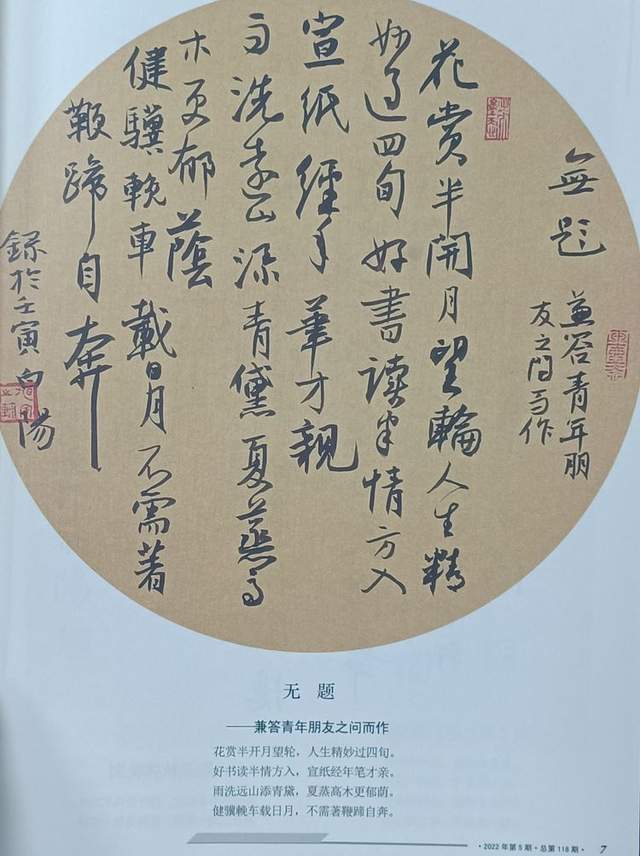 無题
兼答青年朋
友之问而作
花赏半開月望輪人生精
妙过四旬好書读半情方入
宣纸經年筆才親
雨洗远山添青黛夏蒸高
木更郁蔭
健驥輓車載日月不需著
鞭蹄自奔
録於壬寅
无 题
——兼答青年朋友之问而作
花赏半开月望轮，人生精妙过四旬。
好书读半情方入，宣纸经年笔才亲。
雨洗远山添青黛，夏蒸高木更郁荫。
健骥輓车载日月，不需著鞭蹄自奔。
·2022年第5期·总第118期· 7